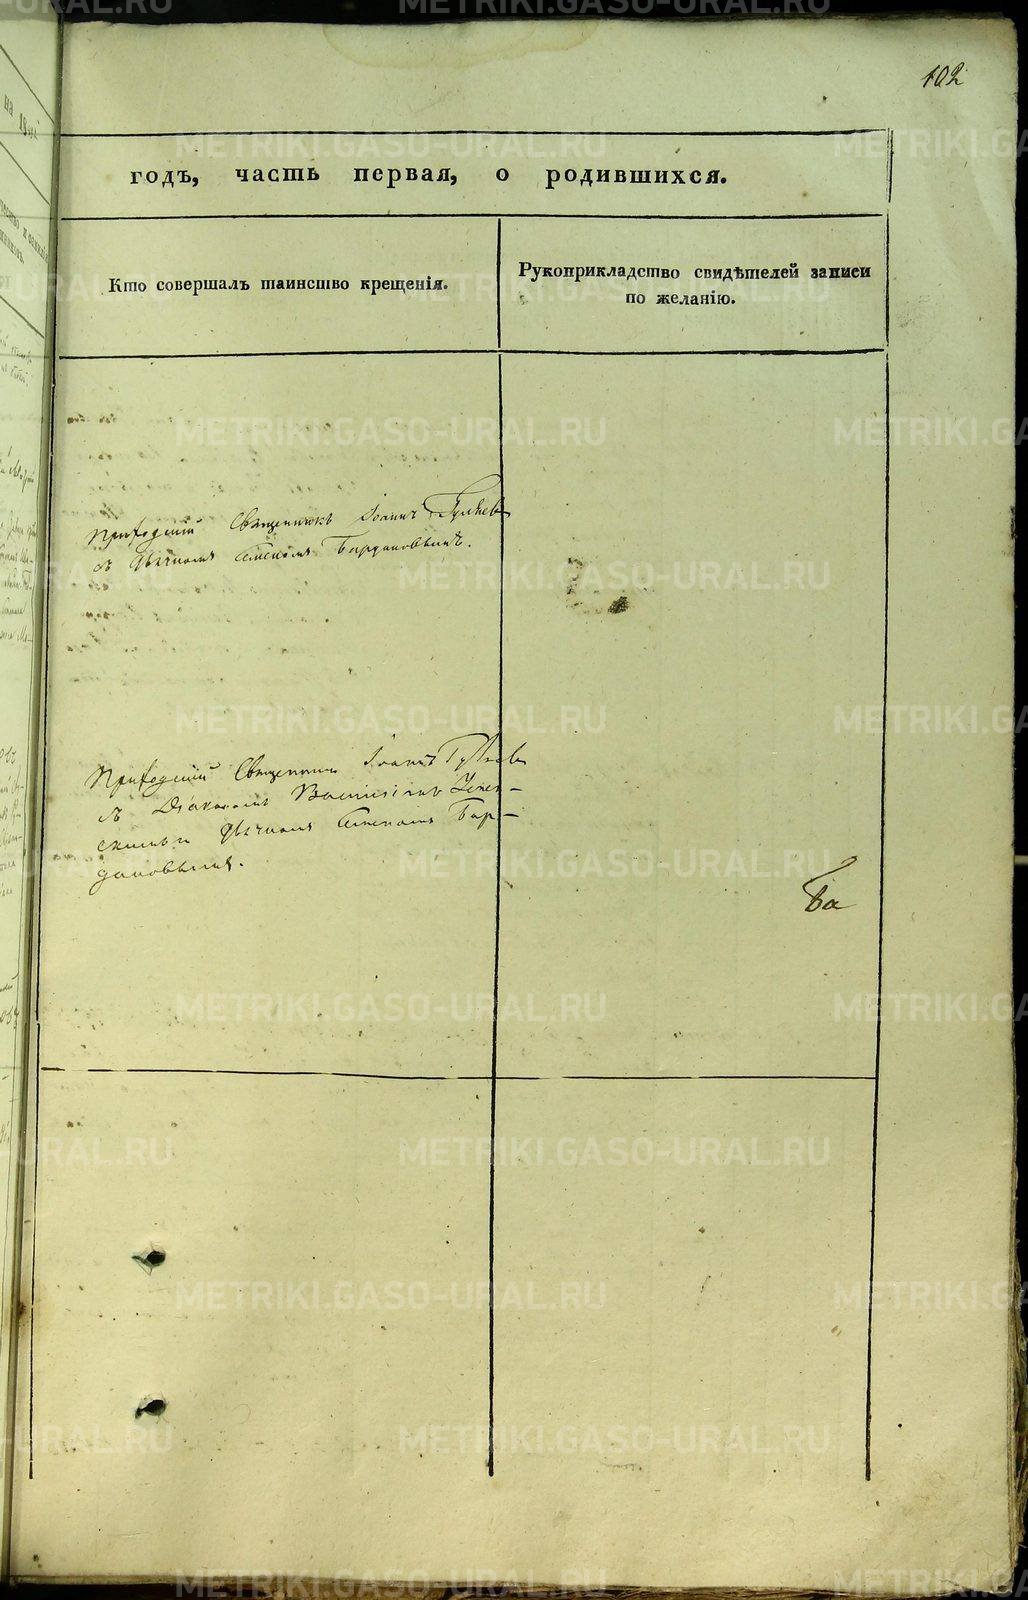 102
годъ, часть первая, о родившихся.
Кто совершалъ таинство крещенія.
Рукоприкладство свидѣтелей записи
по желанію.
Приходскій Священникъ Іоаннъ
съ Дьячкомъ Стефаномъ Бардановымъ.
Приходскій Священникъ Іоаннъ
съ Діакономъ
скимъ и Дьячкомъ Стефаномъ Бар-
дановымъ.
Ба
METRIKI.GASO-URAL.RU